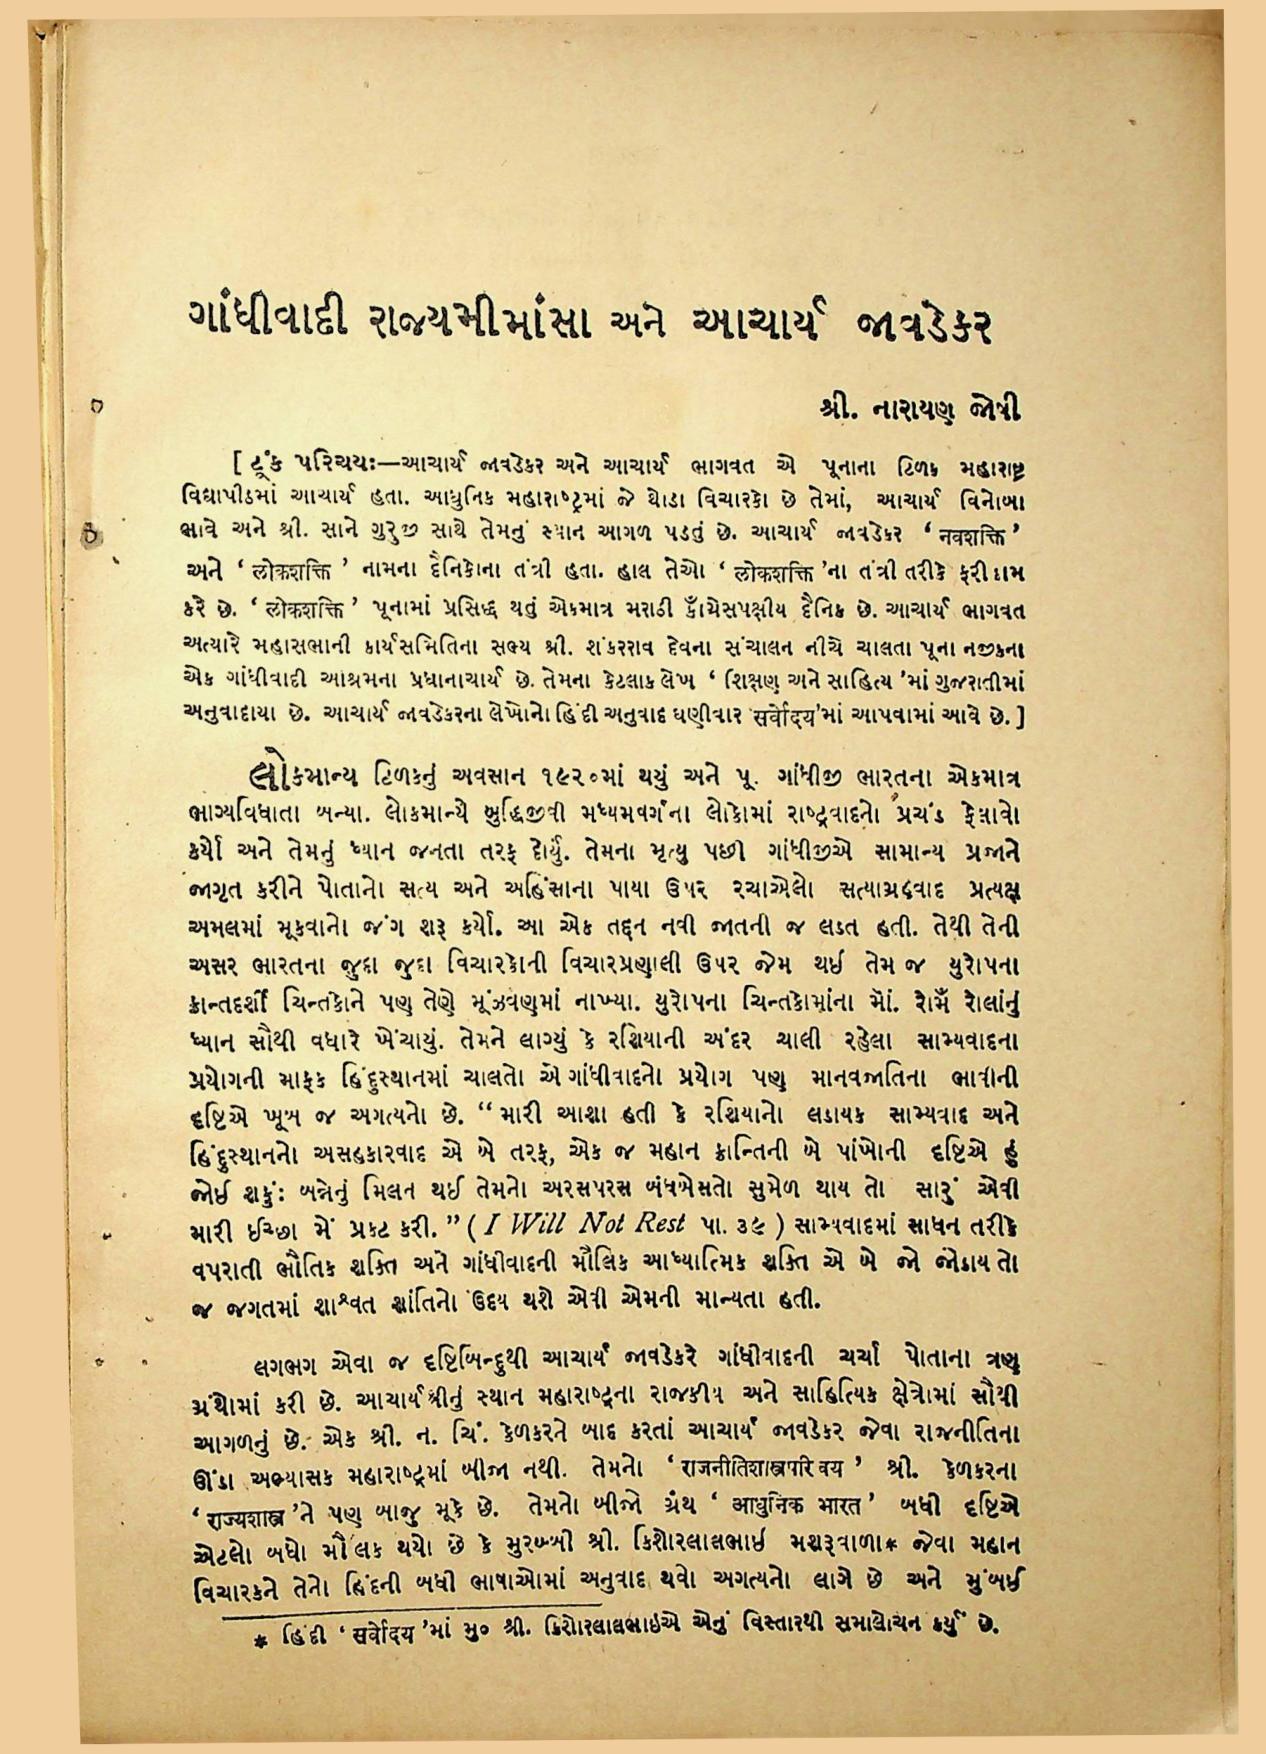 ગાંધીવાદી રાજ્યમીમાંસા અને આચાર્ય જાવડેકર
શ્રી. નારાયણ જોષી
[ ટૂંક પરિચયઃ—આચાર્ય જાવડેકર અને આચાર્ય ભાગવત એ પૂનાના ટિળક મહારાષ્ટ્ર
વિદ્યાપીઠમાં આચાર્ય હતા. આધુનિક મહારાષ્ટ્રમાં જે થોડા વિચારકો છે તેમાં, આચાર્ય વિનોબા
ભાવે અને શ્રી. સાને ગુરુજી સાથે તેમનું સ્થાન આગળ પડતું છે. આચાર્ય જાવડેકર ‘ નવશક્તિ ’
અને ‘ लोकशक्ति ’ નામના દૈનિકોના તંત્રી હતા. હાલ તેઓ ‘ लोकशक्ति ’ના તંત્રી તરીકે ફરી કામ
કરે છે. ‘ लोकशक्ति ’ પૂનામાં પ્રસિદ્ધ થતું એકમાત્ર મરાઠી કૉંગ્રેસપક્ષીય દૈનિક છે. આચાર્ય ભાગવત
અત્યારે મહાસભાની કાર્યસમિતિના સભ્ય શ્રી. શંકરરાવ દેવના સંચાલન નીચે ચાલતા પૂના નજીકના
એક ગાંધીવાદી આશ્રમના પ્રધાનાચાર્ય છે. તેમના કેટલાક લેખ ‘ શિક્ષણ અને સાહિત્ય ’માં ગુજરાતીમાં
અનુવાદાયા છે. આચાર્ય જાવડેકરના લેખોનો હિંદી અનુવાદ ઘણીવાર सर्वोदय’માં આપવામાં આવે છે. ]
લોકમાન્ય ટિળકનું અવસાન ૧૯૨૦માં થયું અને પૂ. ગાંધીજી ભારતના એકમાત્ર
ભાગ્યવિધાતા બન્યા. લોકમાન્યે બુદ્ધિજીવી મધ્યમવર્ગના લોકોમાં રાષ્ટ્રવાદનો પ્રચંડ ફેલાવો
કર્યો અને તેમનું ધ્યાન જનતા તરફ દોર્યું. તેમના મૃત્યુ પછી ગાંધીજીએ સામાન્ય પ્રજાને
જાગૃત કરીને પોતાનો સત્ય અને અહિંસાના પાયા ઉપર રચાએલો સત્યાગ્રહવાદ પ્રત્યક્ષ
અમલમાં મૂકવાનો જંગ શરૂ કર્યો. આ એક તદ્દન નવી જાતની જ લડત હતી. તેથી તેની
અસર ભારતના જુદા જુદા વિચારકોની વિચારપ્રણાલી ઉપર જેમ થઈ તેમ જ યુરોપના
ક્રાન્તદર્શી ચિન્તકોને પણ તેણે મૂંઝવણમાં નાખ્યા. યુરોપના ચિન્તકોમાંના મૅાં. રોમૅં રોલાંનું
ધ્યાન સૌથી વધારે ખેંચાયું. તેમને લાગ્યું કે રશિયાની અંદર ચાલી રહેલા સામ્યવાદના
પ્રયોગની માફક હિંદુસ્થાનમાં ચાલતો એ ગાંધીવાદનો પ્રયોગ પણ માનવજાતિના ભાવીની
દૃષ્ટિએ ખૂબ જ અગત્યનો છે. “મારી આશા હતી કે રશિયાનો લડાયક સામ્યવાદ અને
હિંદુસ્થાનનો અસહકારવાદ એ બે તરફ, એક જ મહાન ક્રાન્તિની બે પાંખોની દૃષ્ટિએ હું
જોઈ શકું: બન્નેનું મિલન થઈ તેમનો અરસપરસ બંધબેસતો સુમેળ થાય તો સારું એવી
મારી ઈચ્છા મેં પ્રકટ કરી.” ( I Will Not Rest પા. ૩૯ ) સામ્યવાદમાં સાધન તરીકે
વપરાતી ભૌતિક શક્તિ અને ગાંધીવાદની મૌલિક આધ્યાત્મિક શક્તિ એ બે જો જોડાય તો
જ જગતમાં શાશ્વત શાંતિનો ઉદય થશે એવી એમની માન્યતા હતી.
લગભગ એવા જ દૃષ્ટિબિન્દુથી આચાર્ય જાવડેકરે ગાંધીવાદની ચર્ચા પોતાના ત્રણ
ગ્રંથોમાં કરી છે. આચાર્યશ્રીનું સ્થાન મહારાષ્ટ્રના રાજકીય અને સાહિત્યિક ક્ષેત્રોમાં સૌથી
આગળનું છે. એક શ્રી. ન. ચિં. કેળકરને બાદ કરતાં આચાર્ય જાવડેકર જેવા રાજનીતિના
ઊંડા અભ્યાસક મહારાષ્ટ્રમાં બીજા નથી. તેમનો ‘ राजनीतिशास्त्रपरिचय ’ શ્રી. કેળકરના
‘ राज्यशास्त्र ’ને પણ બાજુ મૂકે છે. તેમનો બીજો ગ્રંથ ‘ आधुनिक भारत ’ બધી દૃષ્ટિએ
એટલો બધો મૌલિક થયો છે કે મુરબ્બી શ્રી. કિશોરલાલભાઈ મશરૂવાળા* જેવા મહાન
વિચારકને તેનો હિંદની બધી ભાષાઓમાં અનુવાદ થવો અગત્યનો લાગે છે અને મુંબઈ
* હિંદી ‘ सर्वोदय ’માં મુ૦ શ્રી. કિશોરલાલભાઇએ એનું વિસ્તારથી સમાલોચન કર્યું છે.